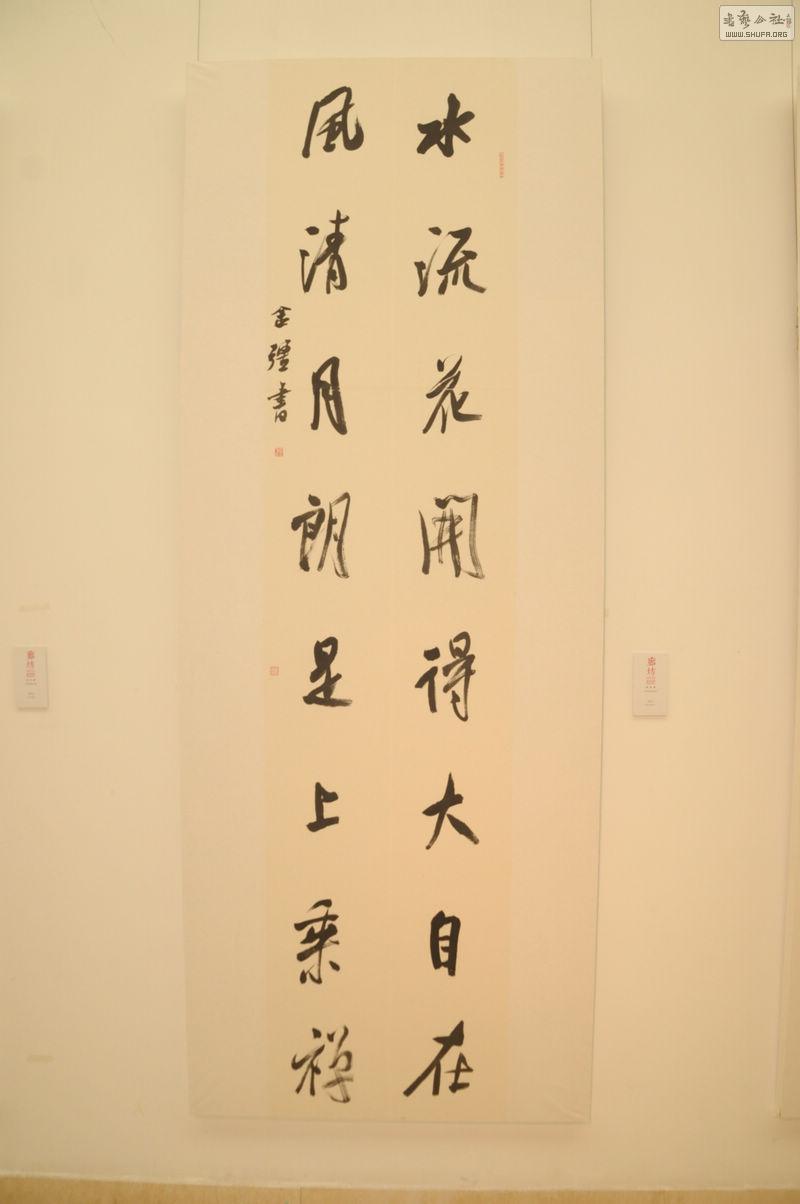 水流花開得大自在
風清月朗是上乘禪
書
廊坊
廊坊
書藝公社
WWW.SHUFA.ORG